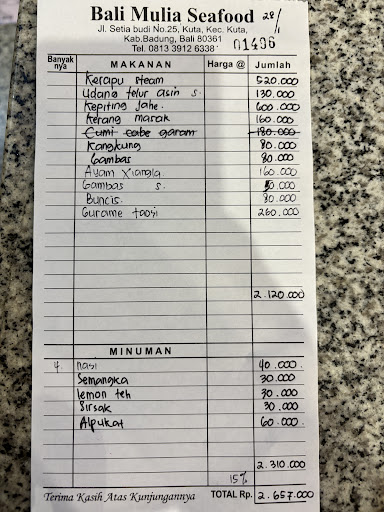 Bali Mulia Seafood 28/1
Jl. Setia budi No.25, Kuta, Kec. Kuta,
Kab.Badung, Bali 80361
Tel. 0813 3912 6338 01496
Banyak nya MAKANAN Harga @ Jumlah
Kerapu steam 520.000
Udang telur asin s. 130.000
Kepiting jahe. 600.000
Kerang masak 160.000
Cumi cabe garam 180.000
Kangkung 80.000
Gambas 80.000
Ayam Xiangla 160.000
Gambas s. 50.000
Buncis. 80.000
Gurame taosi 260.000
2.120.000
MINUMAN
4. nasi 40.000.
Semangka 30.000
lemon teh 30.000
Sirsak 30.000
Alpukat 60.000
2.310.000
15%
Terima Kasih Atas Kunjungannya TOTAL Rp. 2.657.000